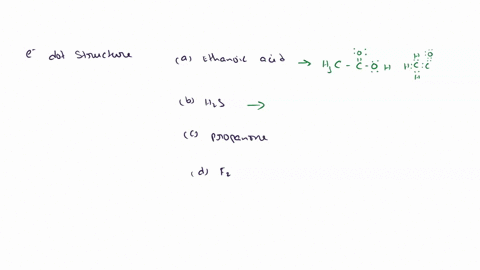 e⁻ dot structure
(a) Ethanoic acid → H₃C - C - O H
(b) H₂S →
(c) propanone
(d) F₂